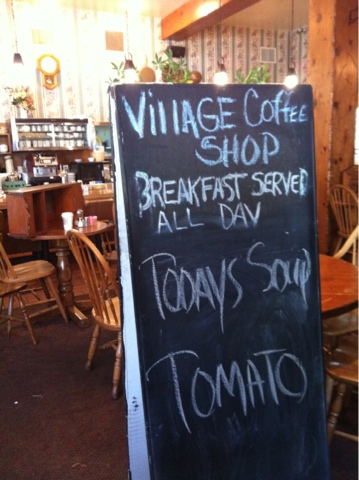 VillAGE COFFEE
SHOP
BREAKFAST SERVED
ALL DAY
TODAYS SOUP
TOMATO